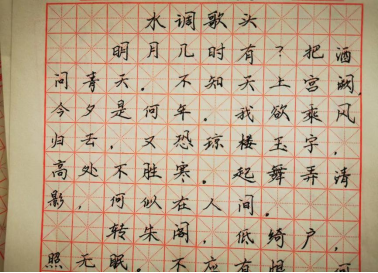 水调歌头
明月几时有？把酒
问青天。不知天上宫阙，
今夕是何年。我欲乘风
归去，又恐琼楼玉宇，
高处不胜寒。起舞弄清
影，何似在人间。
转朱阁，低绮户，
照无眠。不应有恨，何